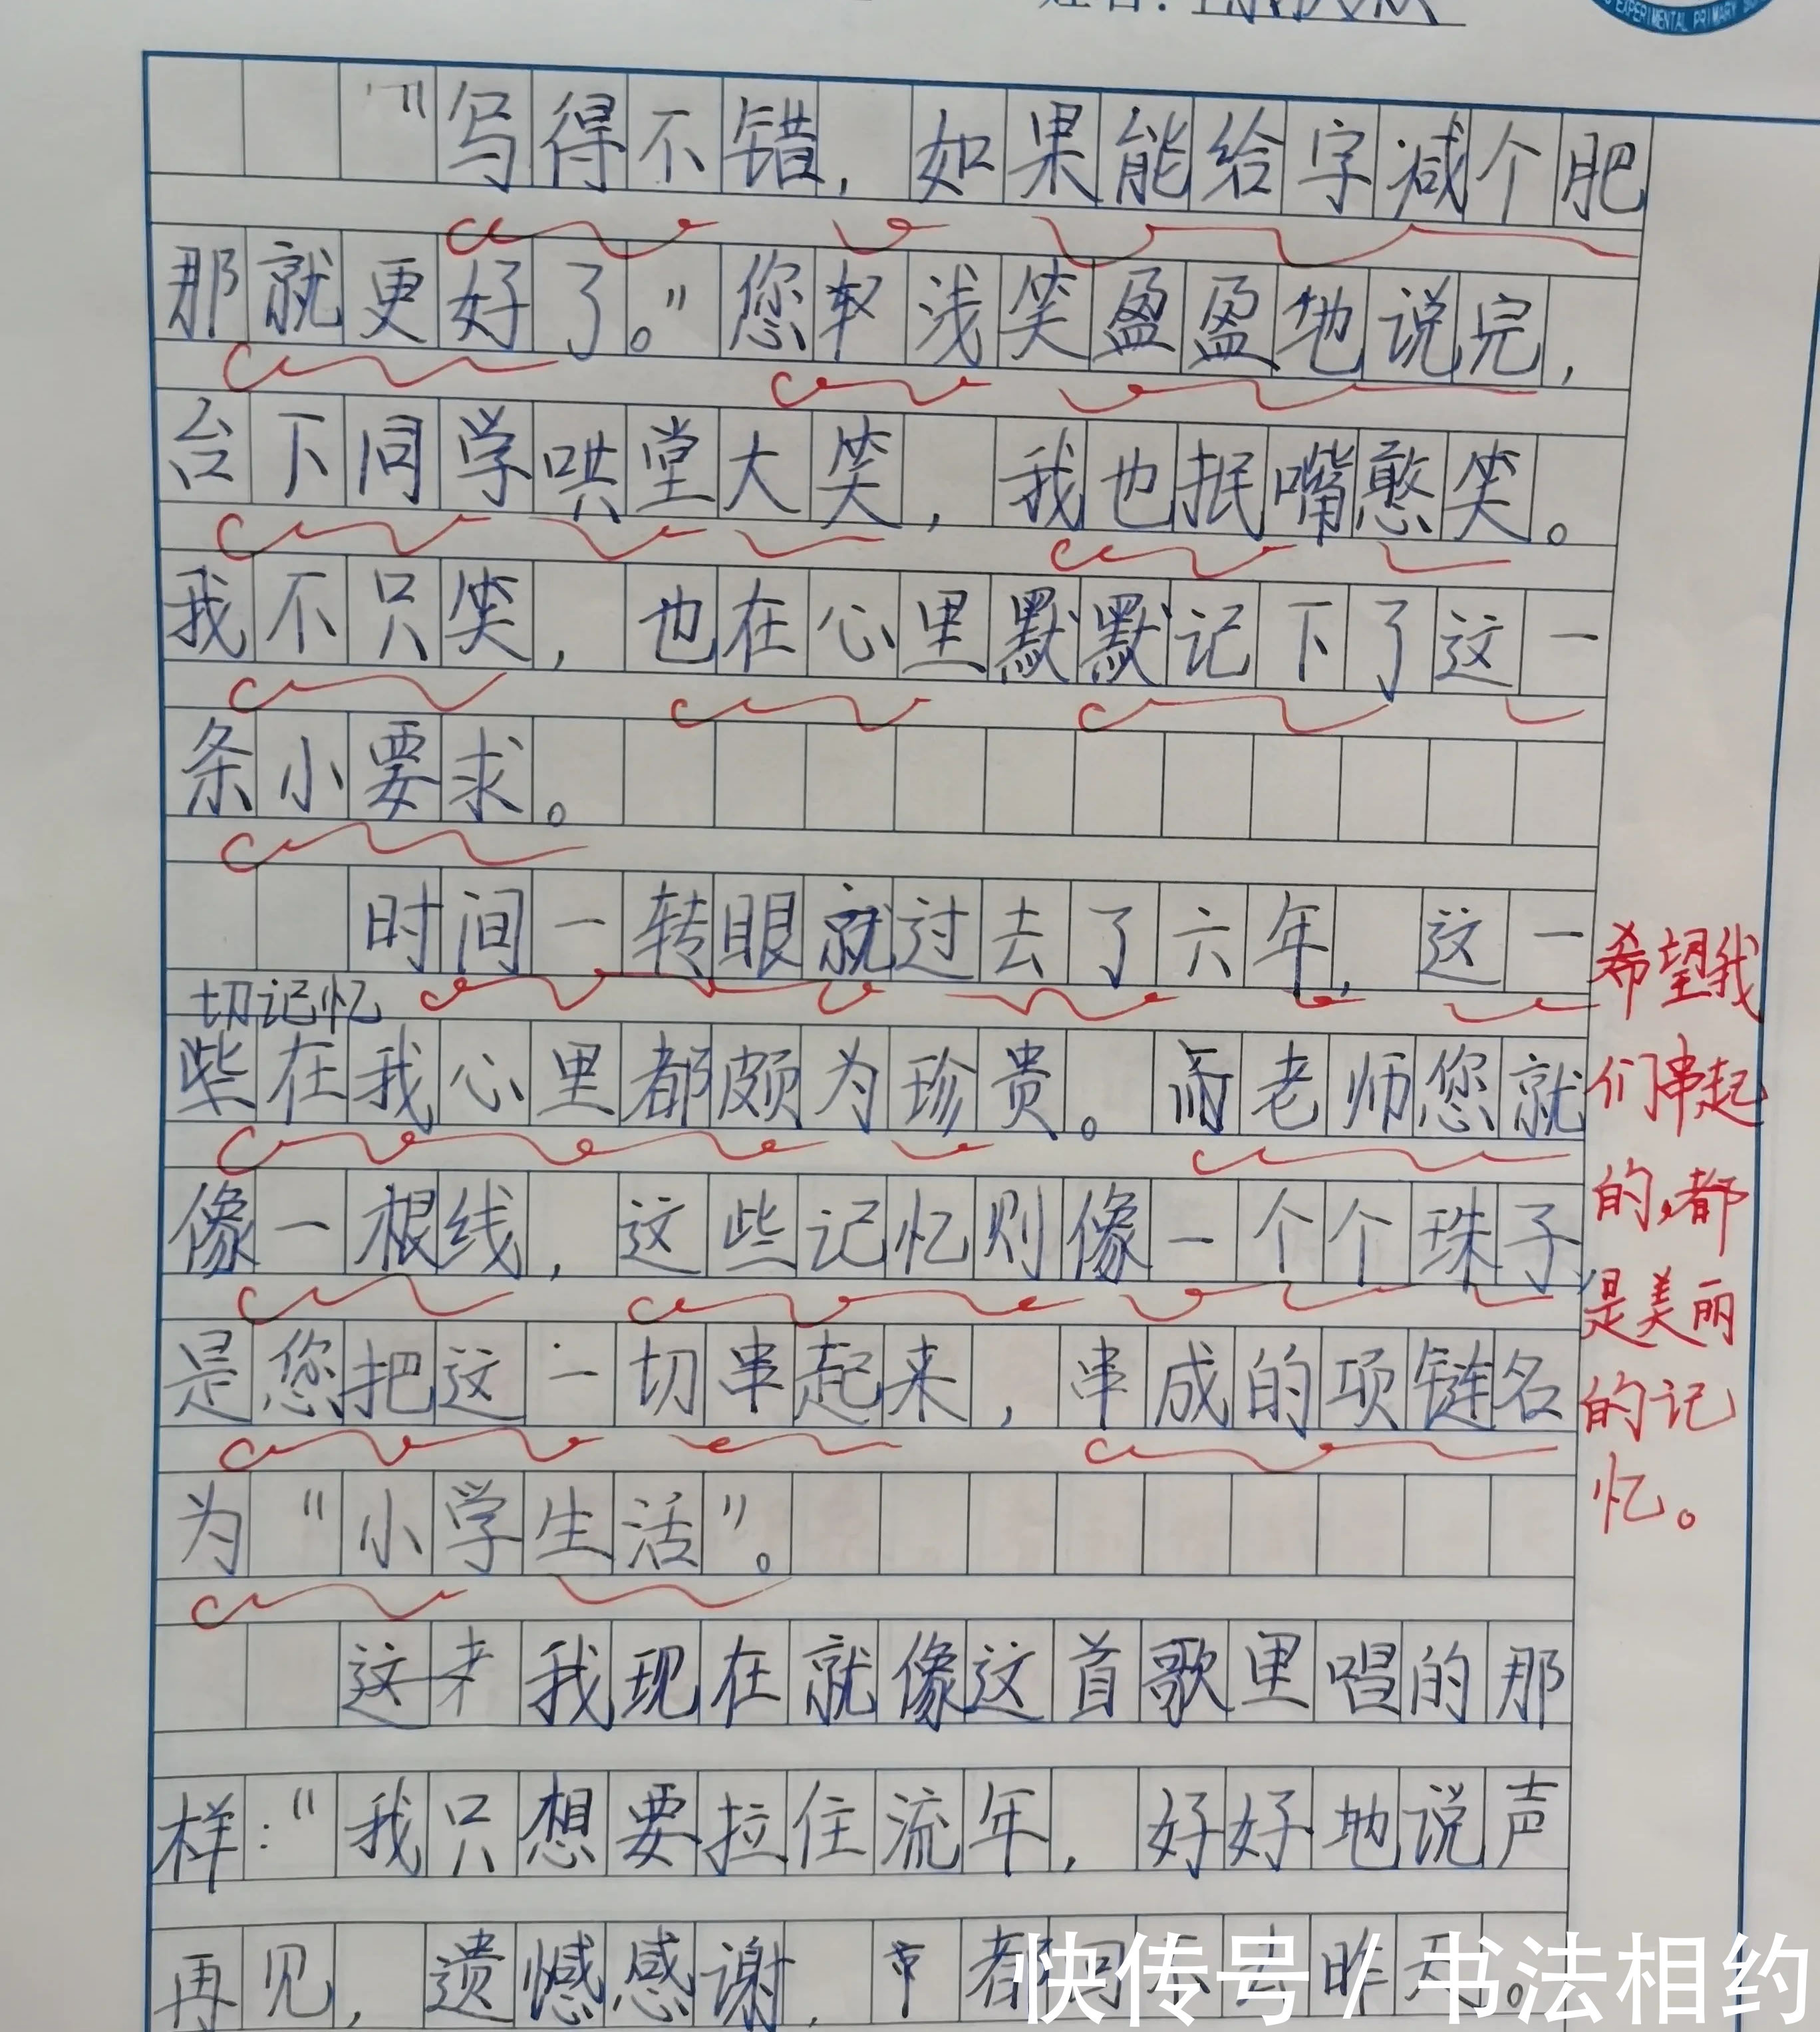 姓名:
EXPERIMENTAL PRIMARY
“写得不错，如果能给字减个肥
那就更好了。”您浅笑盈盈地说完，
台下同学哄堂大笑，我也抿嘴憨笑。
我不只笑，也在心里默默记下了这一
条小要求。
时间一转眼就过去了六年，这一
切记忆
些在我心里都颇为珍贵。而老师您就
像一根线，这些记忆则像一个个珠子，
是您把这一切串起来，串成的项链名
为“小学生活”。
这我现在就像这首歌里唱的那
样：“我只想要拉住流年，好好地说声
再见，遗憾感谢，都回不去昨天。
希望我
们串起
的，都
是美丽
的记
忆。
快传号 / 书法相约